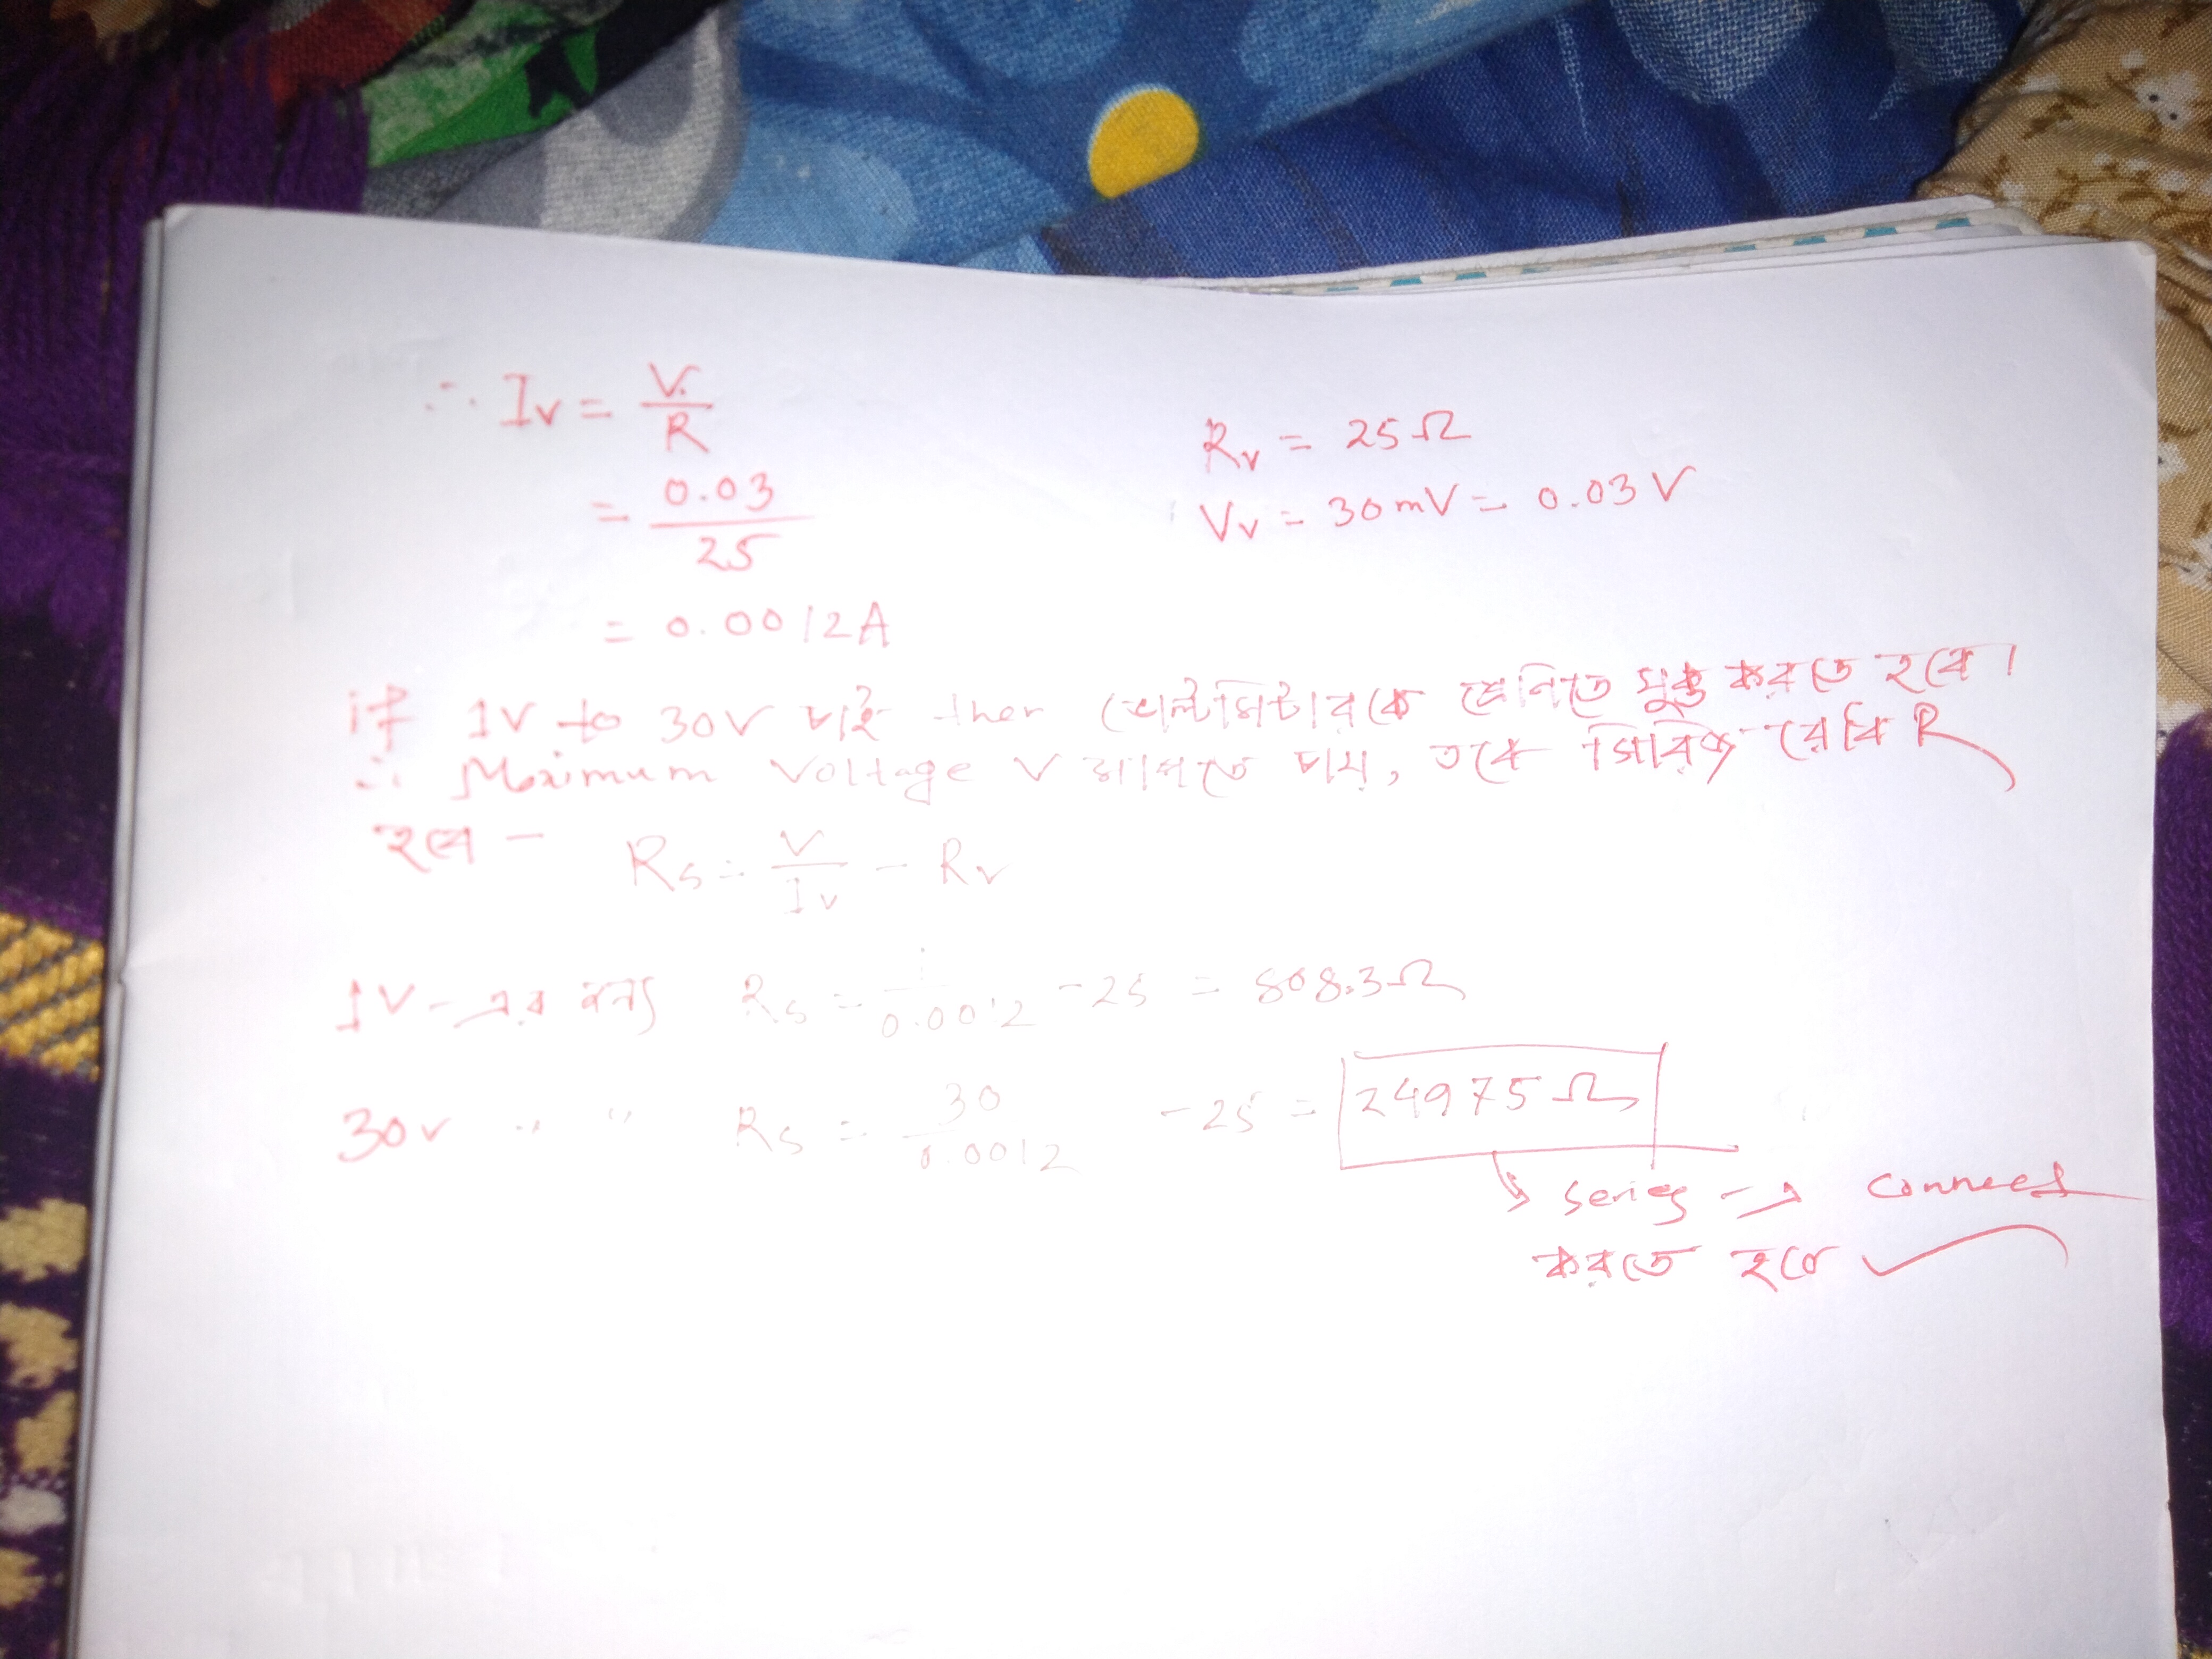 ∴ Iv = V/R
Rv = 25Ω
= 0.03/25
Vv = 30mV = 0.03 V
= 0.0012A
if 1V to 30V চাই then ভোল্টমিটারকে শ্রেনিতে যুক্ত করতে হবে।
∴ Maximum Voltage V মাপতে চায়, তবে সিরিজ রোধ R
হবে -
Rs = V/Iv - Rv
1V-এর জন্য Rs = 1/0.0012 - 25 = 808.3Ω
30v " " Rs = 30/0.0012 - 25 = 24975Ω
↳ series → connect
করতে হবে